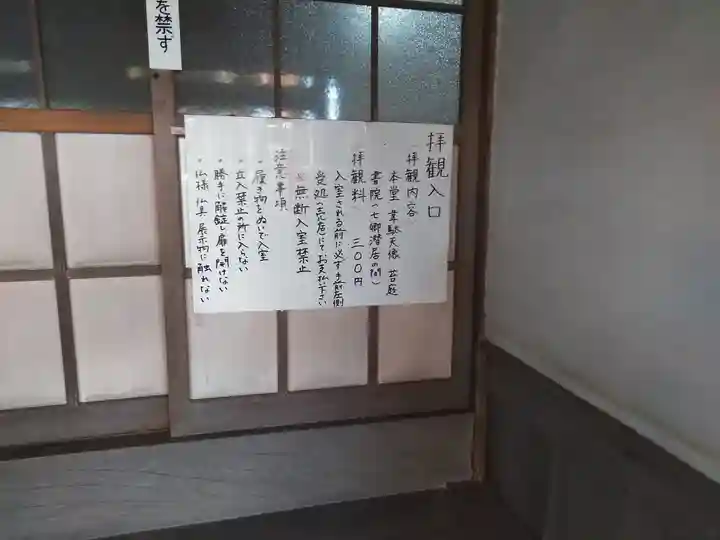 拝観入口
拝観内容
本堂 韋駄天像 苔庭
書院(七卿潜居の間)
拝観料 三〇〇円
入室される前に必ず手前左側
受処(売店)にてお支払下さい
※無断入室禁止
注意事項
・履き物をぬいで入室
・立入禁止の所に入らない
・勝手に解錠し扉を開けない
・仏様 仏具 展示物に触れない
を禁ず